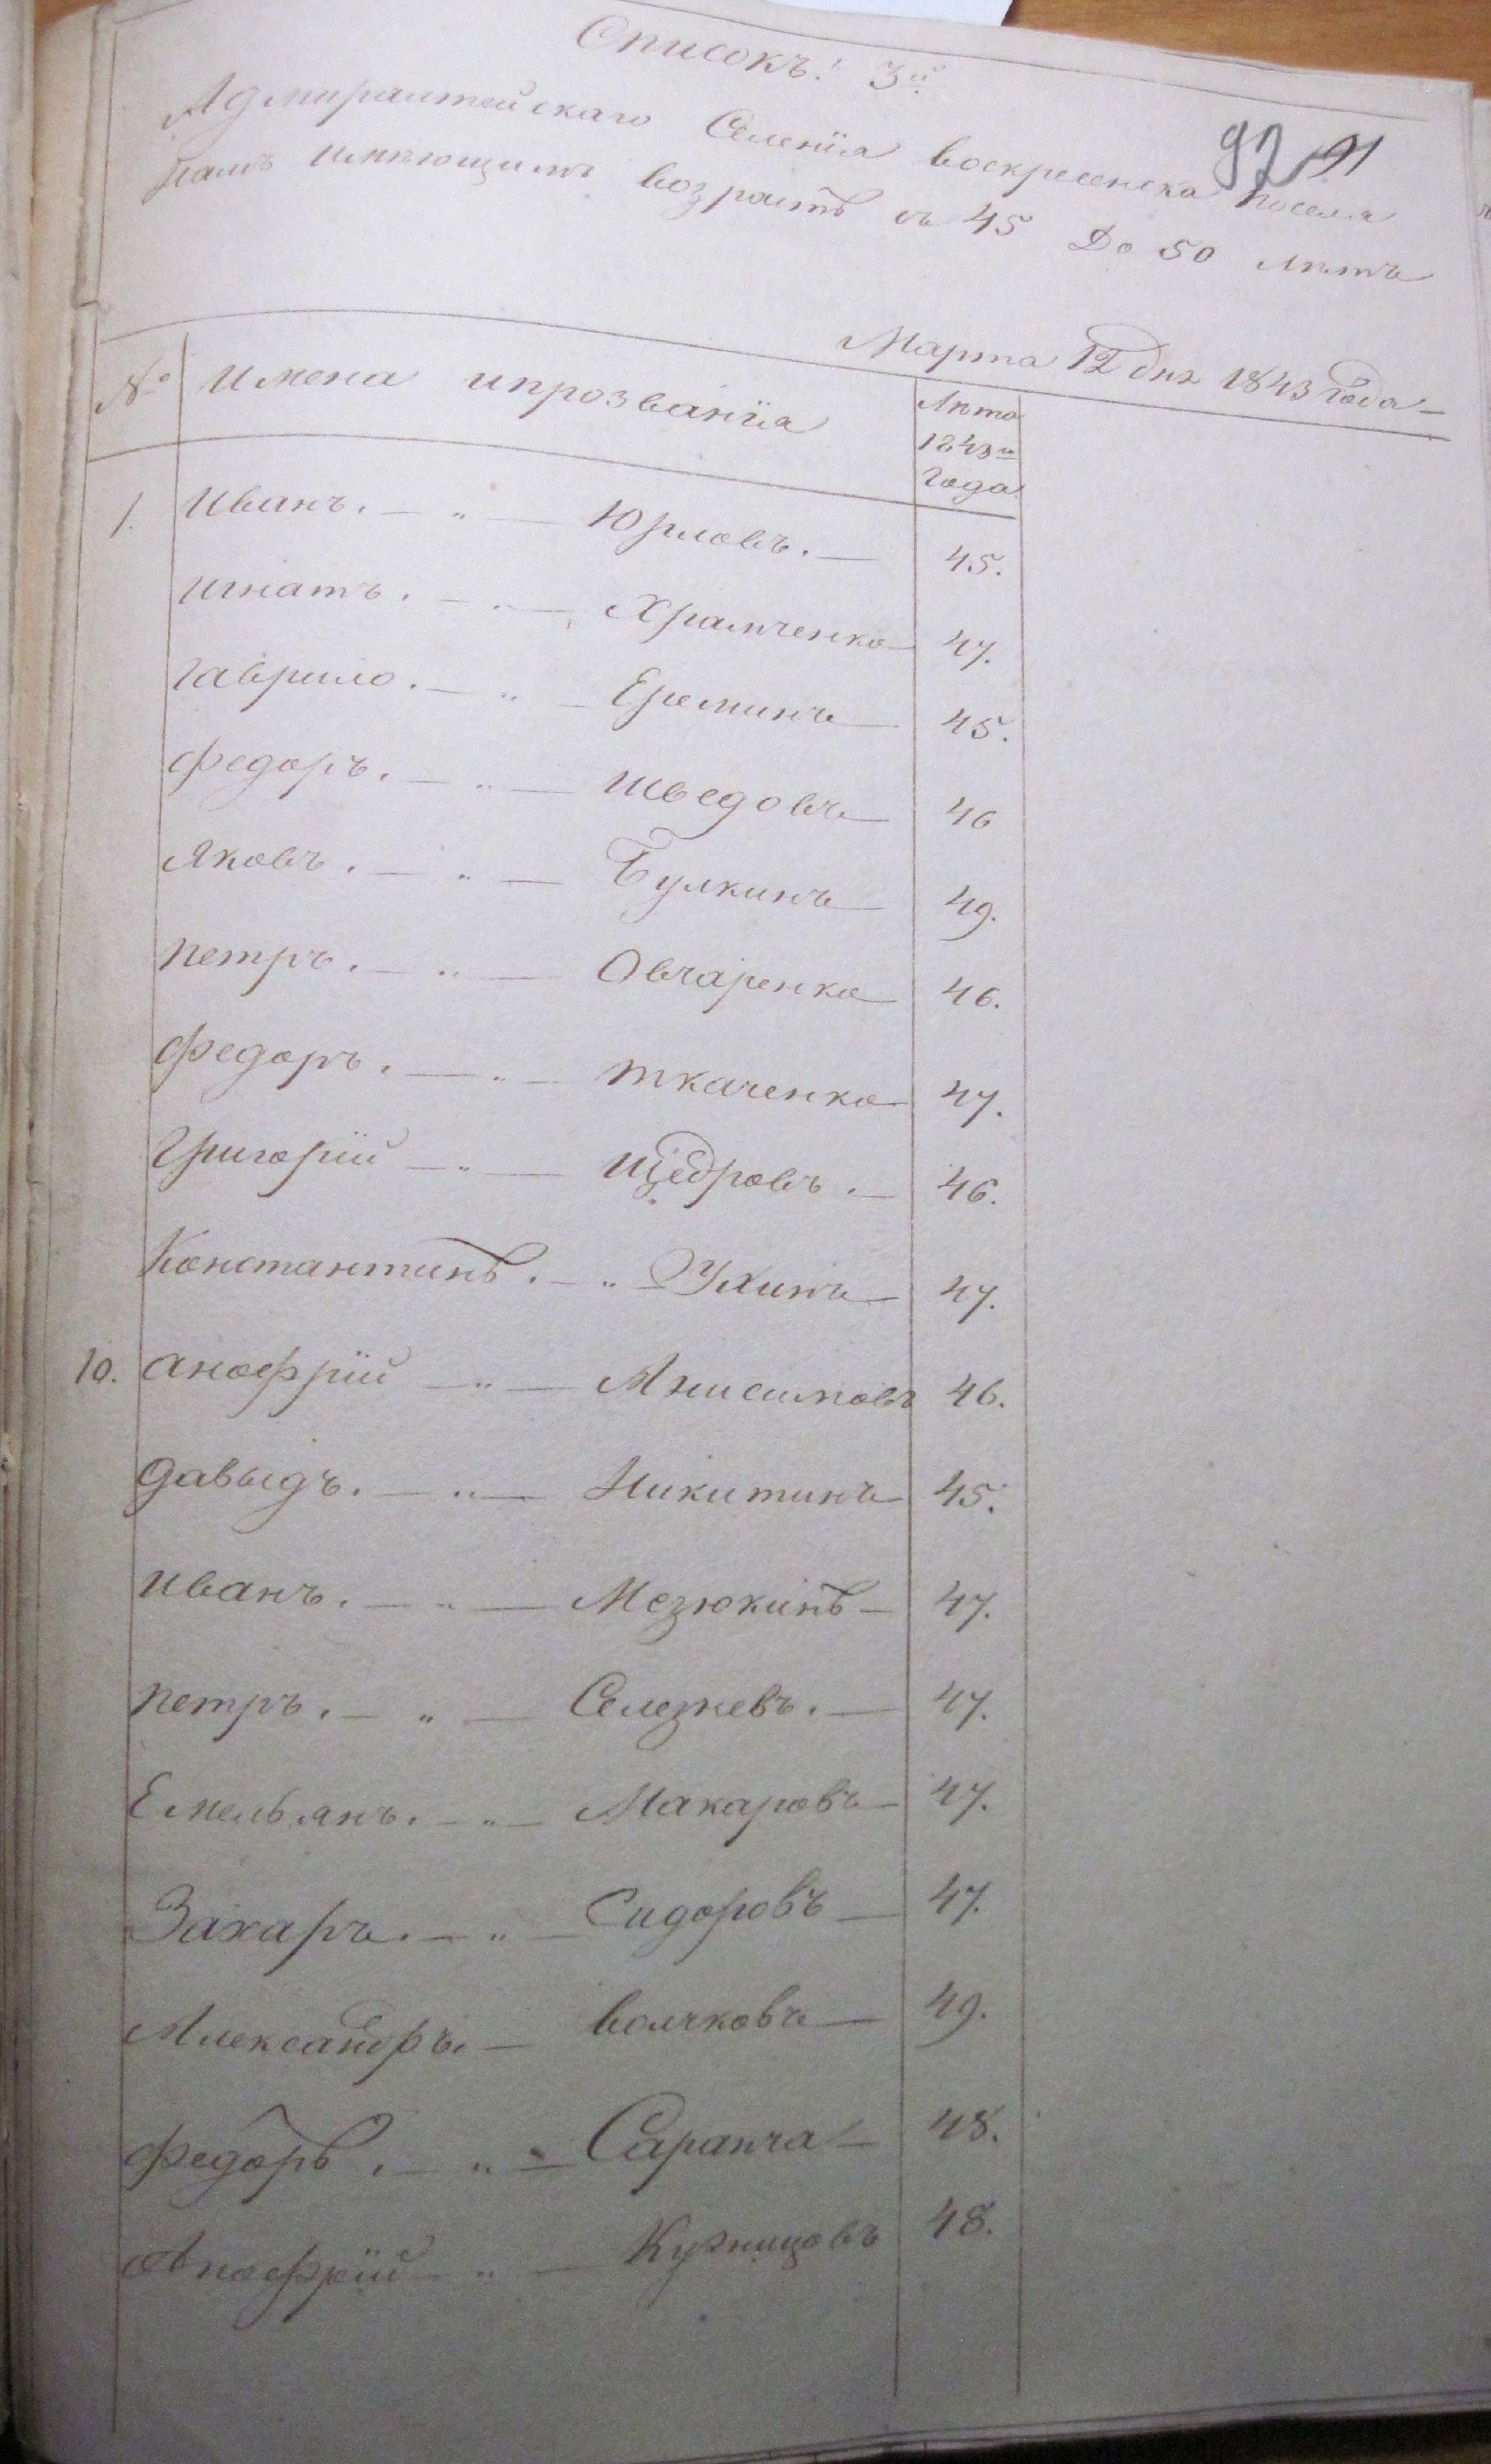 Списокъ! 3й
92 91
Адмиралтейскаго Селенїа воскресенска поселя
намъ имѣющимъ возрастъ съ 45 До 50 лѣтъ
Марта 12 дня 1843 Года
№ Имена ипрозванїа Лѣта
1843го
Года
1. Иванъ. — „ — Юрловъ. — 45.
игнатъ. — „ — Храмченко 47.
гаврило. — „ — Ереминъ — 45.
федоръ. — „ — шведовъ — 46
Яковъ. — „ — Булкинъ — 49.
петръ. — „ — Овчаренко — 46.
федоръ. — „ — ткаченко — 47.
Григорїй — „ — щедровъ. — 46.
Константинъ. — „ — Ухинъ — 47.
10. анофрїй — „ — Анисимовъ 46.
давыдъ. — „ — Никитинъ — 45.
иванъ. — „ — Мезюкинъ — 47.
петръ. — „ — Селезневъ. — 47.
Емельянъ. — „ — Макаровъ — 47.
Захаръ. — „ — Сидоровъ — 47.
Александръ. — волчковъ — 49.
федоръ. — „ — Саранча — 48.
Анофрїй — „ — Кузницовъ 48.